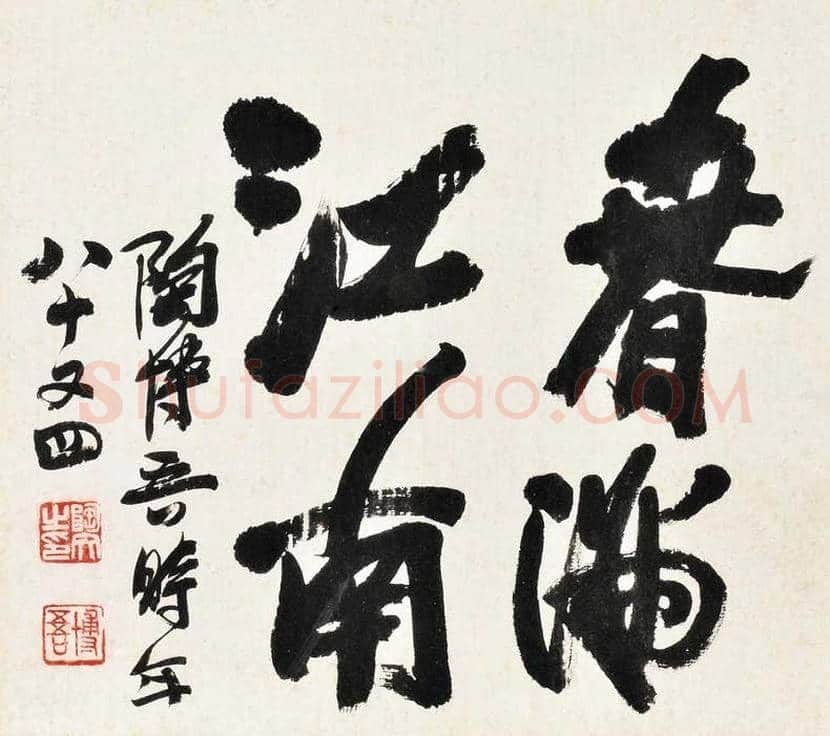 春滿
江南
陶博吾時年
八十又四
博吾
Shufaziliao.COM